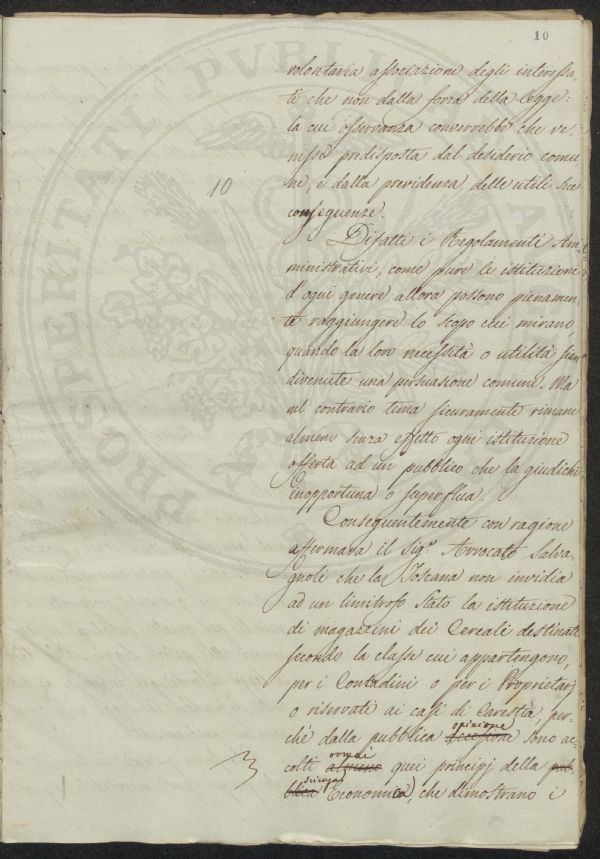 10
volontaria associazione degli interessa,
ti che non dalla forza della Legge:
la cui osservanza converrebbe che ve,
nisse predisposta dal desiderio comu,
ne, e dalla previdenza delle utili sue
conseguenze.
10
Difatti i Regolamenti Am,
ministrativi, come pure le istituzioni
d'ogni genere allora possono pienamen,
te raggiungere lo scopo cui mirano,
quando la loro necessità o utilità sian
divenute una persuasione comune. Ma
nel contrario tema sicuramente rimane
almeno senza effetto ogni istituzione
offerta ad un pubblico che la giudichi
inopportuna o superflua.
Conseguentemente con ragione
affermava il Sigr. Avvocato Salva,
gnoli che la Toscana non invidia
ad un limitrofo Stato la istituzione
di magazzini dei Cereali destinati
secondo la classe cui appartengono,
per i Contadini o per i Proprietarj
o riservati ai casi di Carestia, per,
opinione
chè dalla pubblica sono ac,
ormai
colti almeno quei principj della pub,
scienza
blica Economica, che dimostrano i
PROSPERITATI PVBLICAE